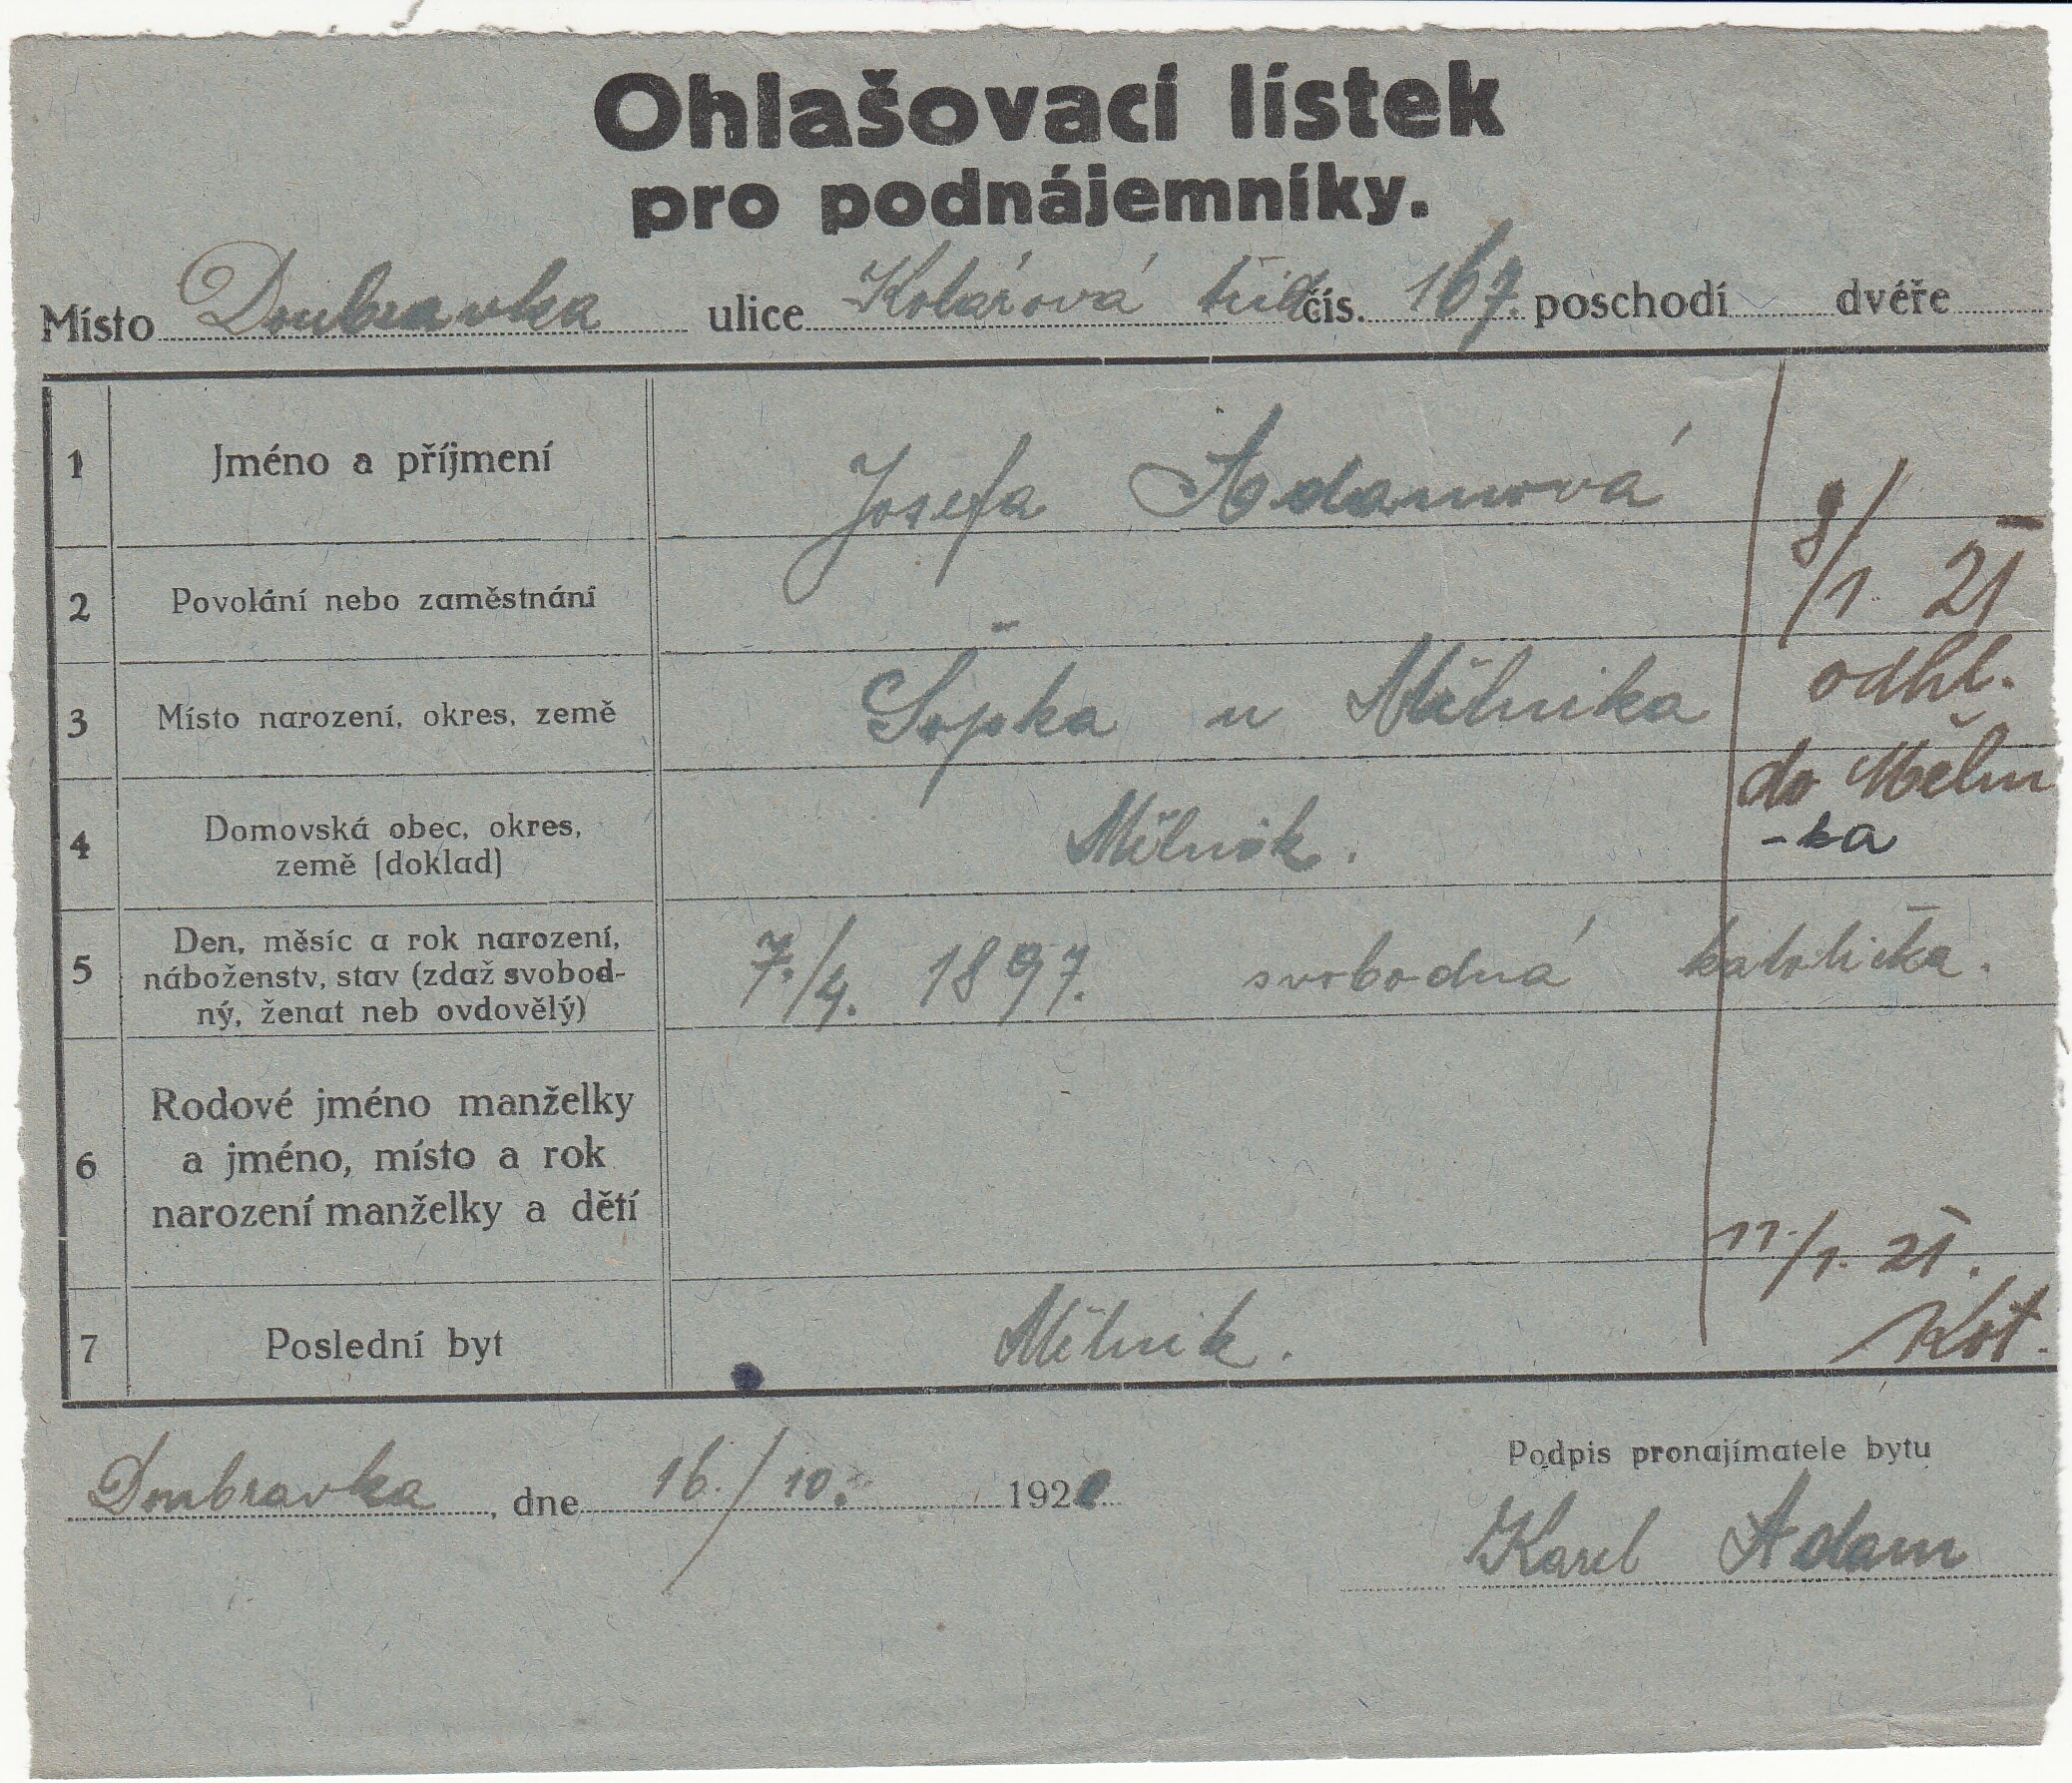 Ohlašovací lístek
pro podnájemníky.
Místo Doubravka ulice Kolárová třída čís. 167. poschodí dvéře
1 Jméno a příjmení Josefa Adamová
2 Povolání nebo zaměstnání -
3 Místo narození, okres, země Šopka u Mělníka
4 Domovská obec, okres,
země (doklad) Mělník.
5 Den, měsíc a rok narození,
náboženstv, stav (zdaž svobod-
ný, ženat neb ovdovělý) 7./4. 1897. svobodná katolička.
6 Rodové jméno manželky
a jméno, místo a rok
narození manželky a dětí
7 Poslední byt Mělník.
8/1. 21
odhl.
do Měln
-ka
11./1. 21.
Kot.
Doubravka, dne 16./10. 1920
Podpis pronajímatele bytu
Karel Adam